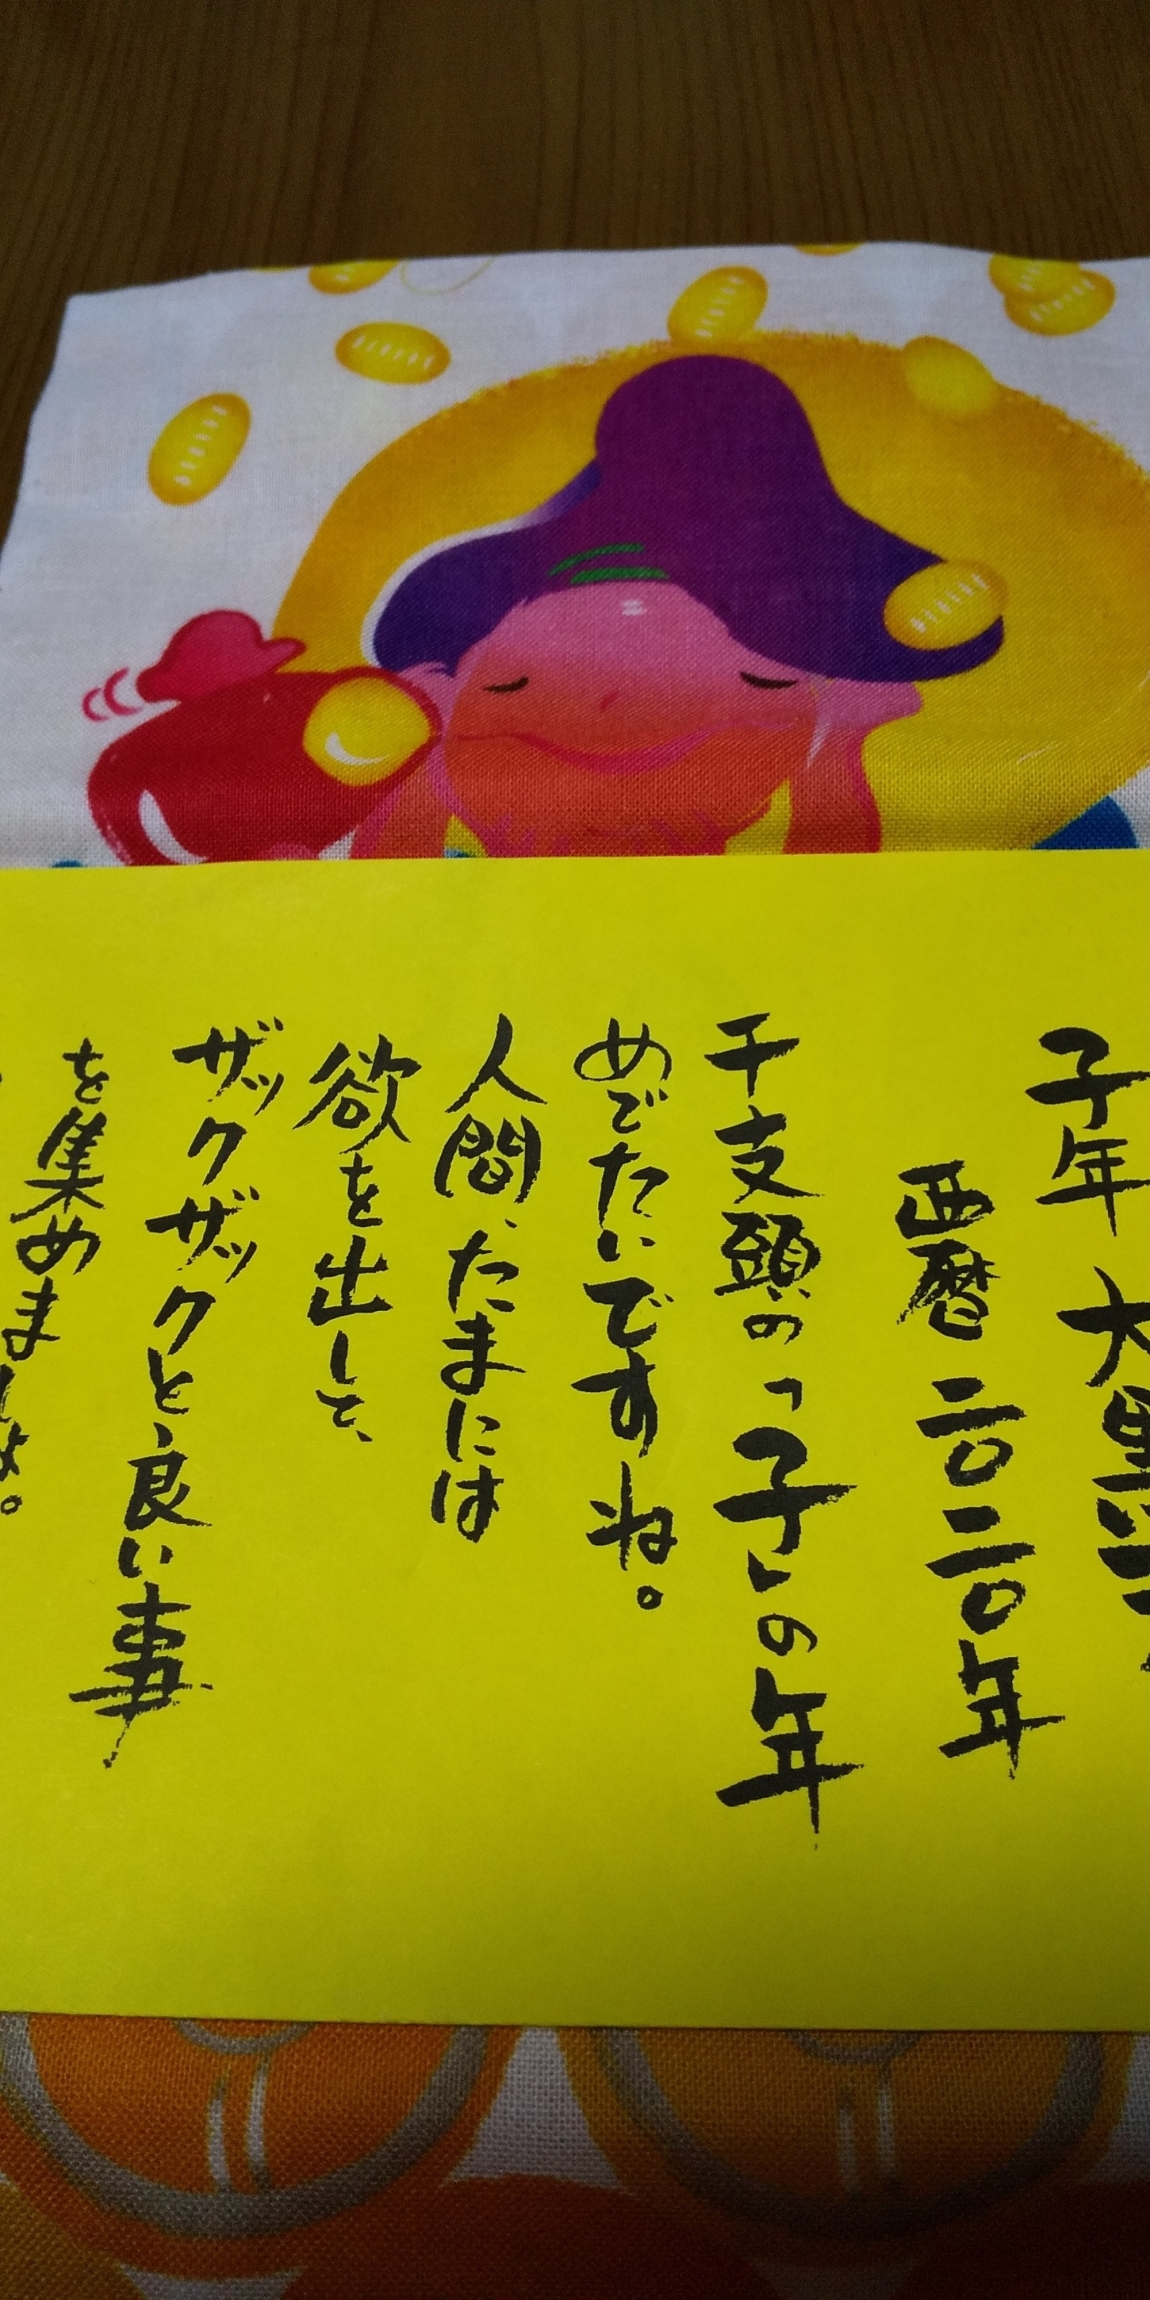 子年 大黒
西暦 二〇二〇年
干支頭の「子」の年
めでたいですね。
人間、たまには
欲を出して、
ザックザックと、良い事
を集めましょ。